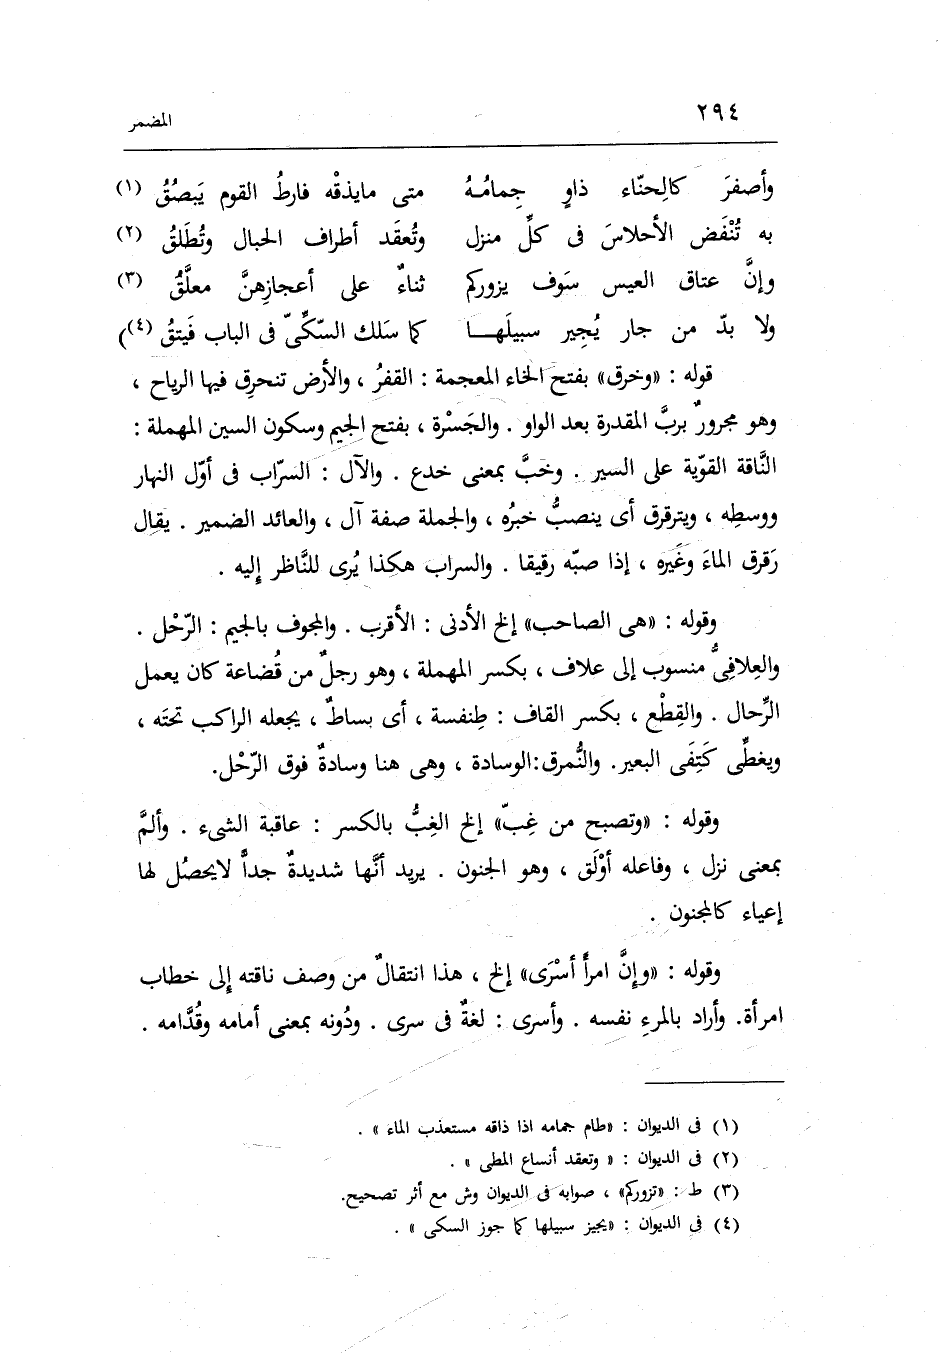 ٢٩٤
المضمر
وأصفرَ كالِحنّاء ذاوٍ جِمامُهُ متى مايذقْه فارطُ القوم يَبصُقُ (١)
به تُنْفَض الأحلاسَ فى كلِّ منزل وتُعقَد أطراف الحبال وتُطلَقُ (٢)
وإنَّ عتاق العيس سَوف يزوركم ثناءٌ على أعجازِهنَّ معلَّقُ (٣)
ولا بدّ من جار يُجير سبيلَهـا كما سَلك السّكِّىّ فى الباب فَيتقُ (٤))
قوله : «وخرق» بفتح الخاء المعجمة : القفرُ ، والأرض تنحرِق فيها الرياح ،
وهو مجرورٌ بربَّ المقدرة بعد الواو . والجَسْرة ، بفتح الجيم وسكون السين المهملة :
النَّاقة القوّية على السير . وخبَّ بمعنى خدع . والآل : السرّاب فى أوّل النهار
ووسطِه ، ويترقرق أى ينصبُّ خبرُه ، والجملة صفة آل ، والعائد الضمير . يقال
رَقرق الماءَ وغَيره ، إذا صبّه رقيقا . والسراب هكذا يُرى للنَّاظر إليه .
وقوله : «هى الصاحب» إلخ الأدنى : الأقرب . والمجوف بالجيم : الرّحْل .
والعِلافِىُّ منسوب إلى علاف ، بكسر المهملة ، وهو رجلٌ من قُضاعة كان يعمل
الرِّحال . والقِطْع ، بكسر القاف : طِنفسة ، أى بساطٌ ، يجعله الراكب تحتَه ،
ويغطِّى كَتِفَى البعير. والنُّمرق:الوسادة ، وهى هنا وسادةٌ فوق الرّحْل.
وقوله : «وتصبح من غِبّ» إلخ الغِبُّ بالكسر : عاقبة الشىء . وألمَّ
بمعنى نزل ، وفاعله أوْلَق ، وهو الجنون . يريد أنَّها شديدةٌ جداًّ لايحصُل لها
إعياء كالمجنون .
وقوله : «وإنَّ امرأً أسْرَى» إلخ ، هذا انتقالٌ من وصف ناقته إلى خطاب
امرأة. وأراد بالمرءِ نفسه . وأسرى : لغةٌ فى سرى . ودُونه بمعنى أمامه وقُدَّامه .
(١) فى الديوان : «طام جمامه اذا ذاقه مستعذب الماء» .
(٢) فى الديوان : « وتعقد أنساع المطى » .
(٣) ط : «تزوركم» ، صوابه فى الديوان وش مع أثر تصحيح.
(٤) فى الديوان : «يجيز سبيلها كما جوز السكى » .